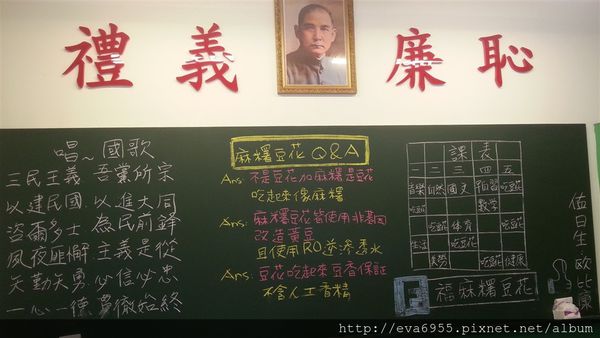 禮 義 廉 恥
唱~國歌
三民主義 吾黨所宗
以建民國 以進大同
咨爾多士 為民前鋒
夙夜匪懈 主義是從
矢勤矢勇 必信必忠
一心一德 貫徹始終
麻糬豆花 Q&A
Ans: 不是豆花加麻糬是豆花
吃起來像麻糬
Ans: 麻糬豆花皆使用非基因
改造黃豆
且使用RO逆滲透水
Ans: 豆花吃起來豆香保証
不含人工香精
課表
一 二 三 四 五
音樂 自然 國文 自習 吃豆花
吃豆花 數學
吃豆花 體育 吃豆花
生活 吃豆花
美勞 吃豆花 健康
福麻糬豆花
值日生 歐比康
http://eva6955.pixnet.net/album